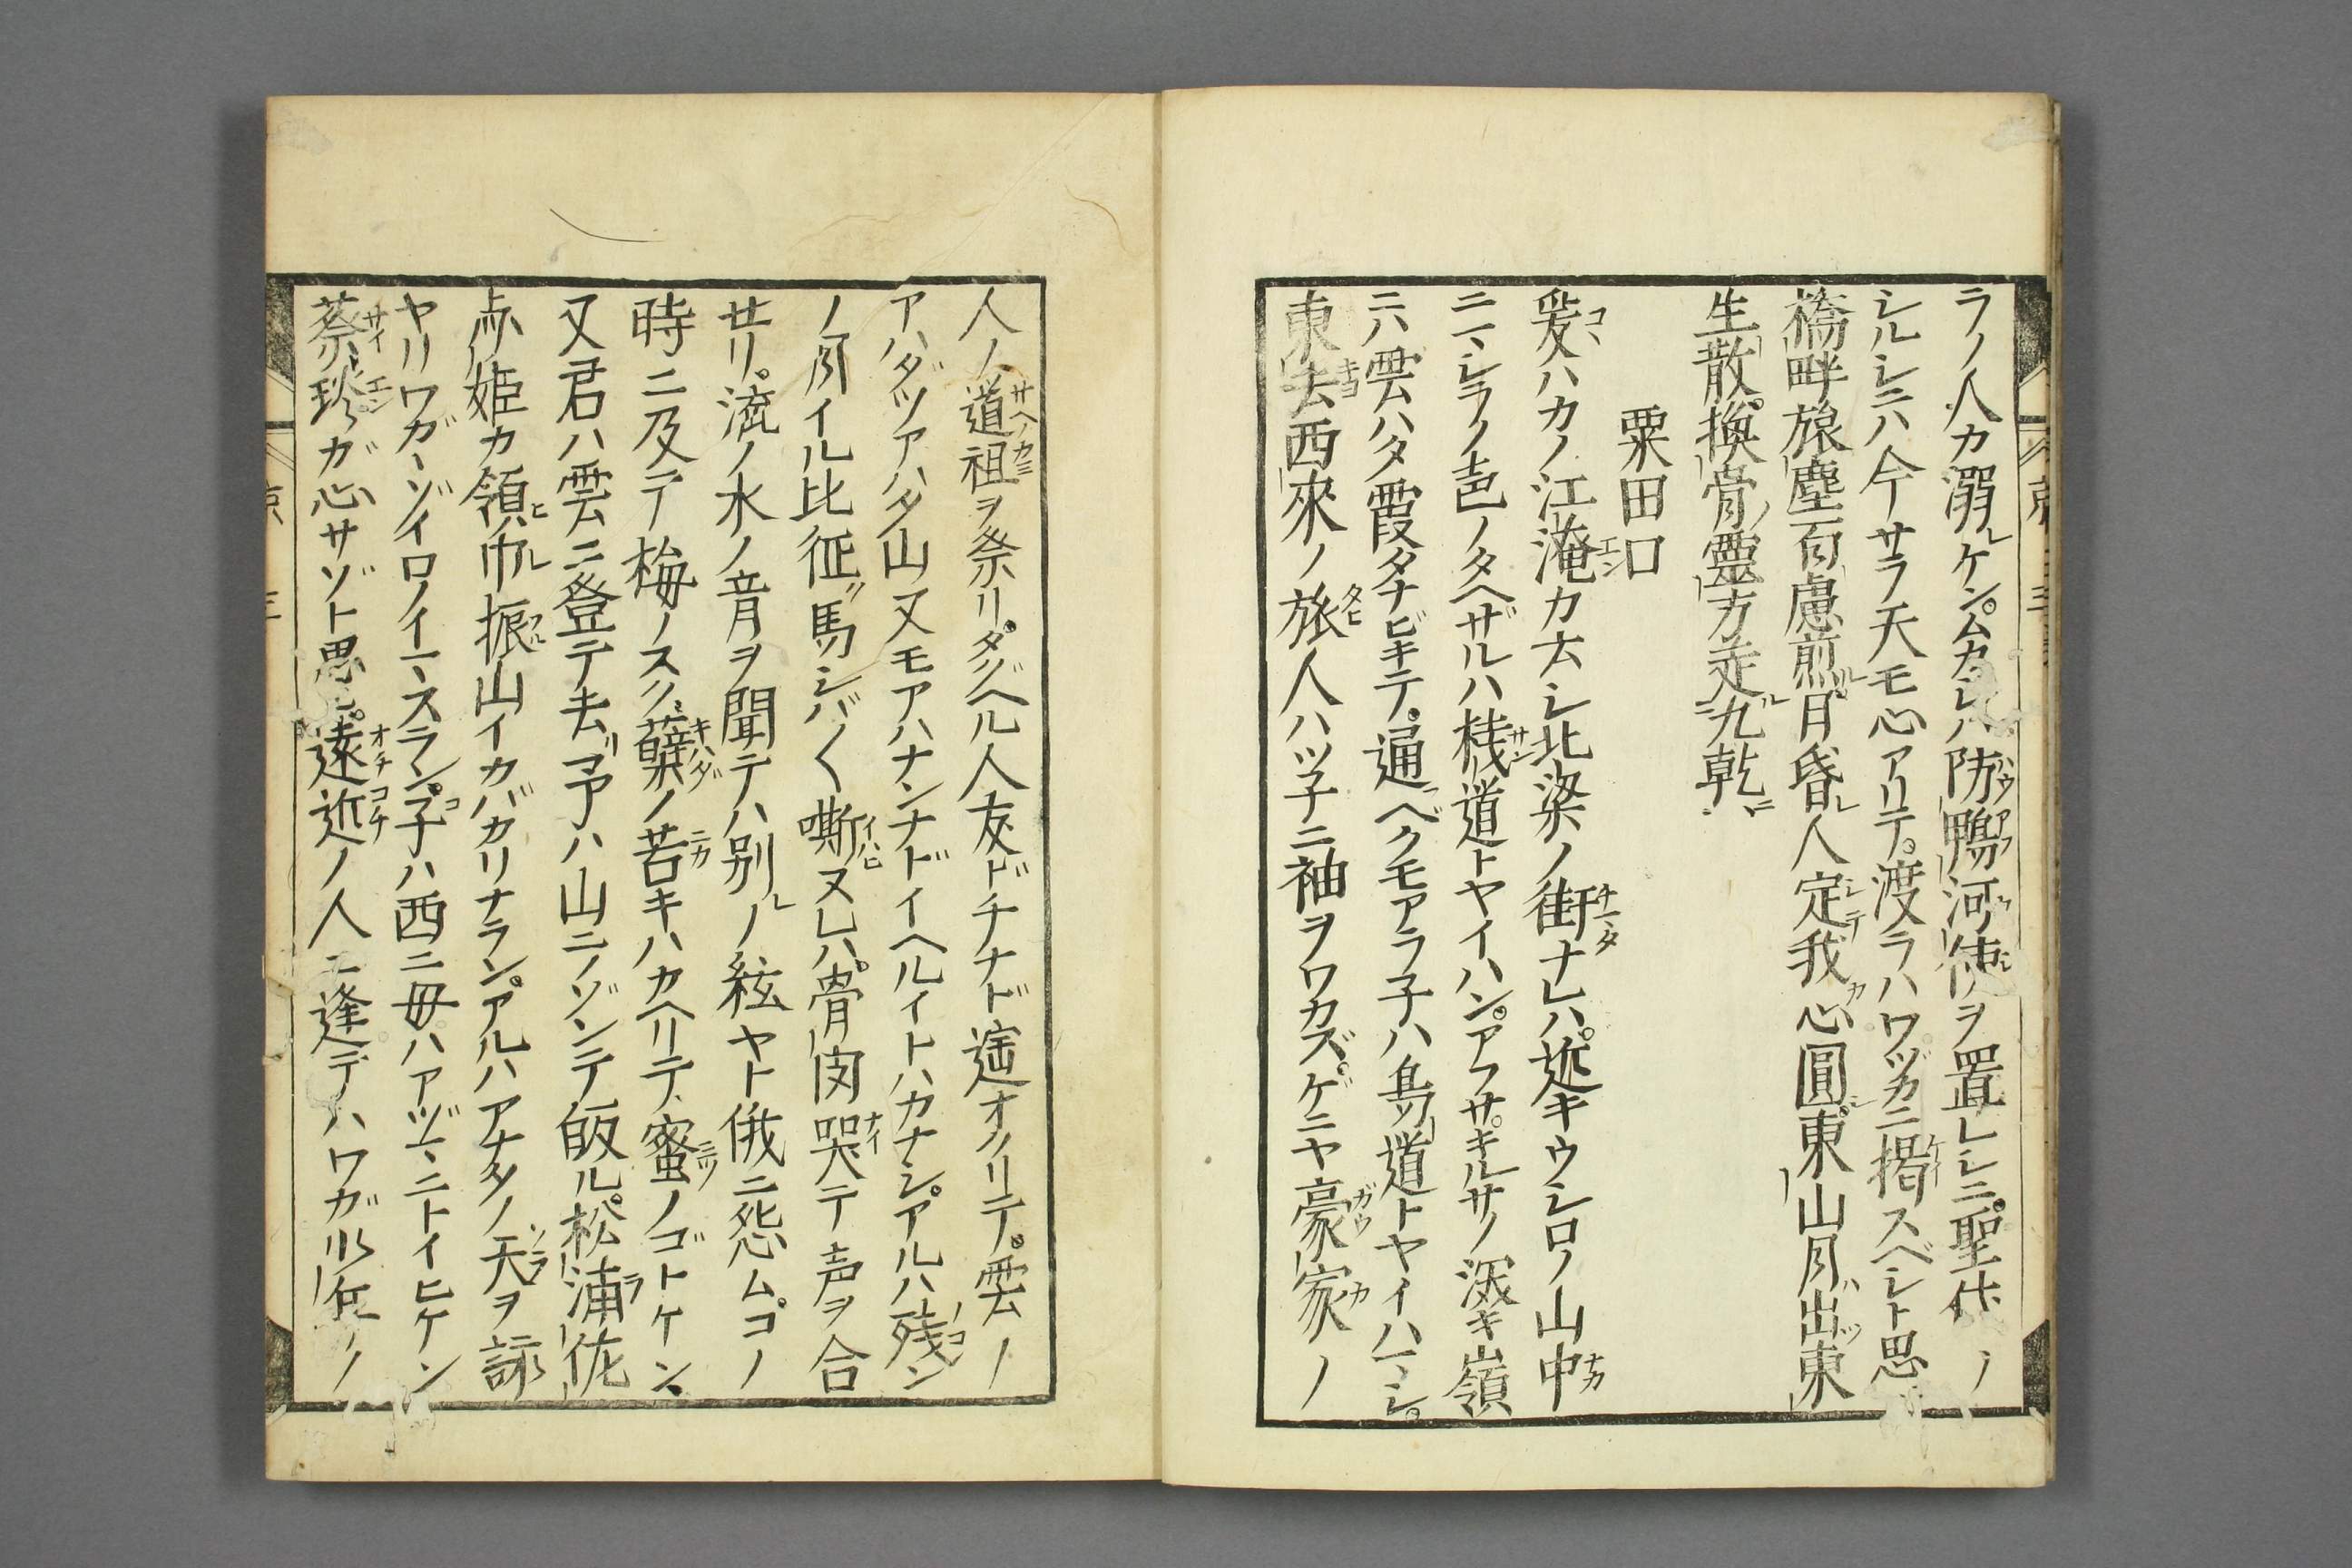 ラノ人カ溺レケンムカシハ防鴨河使ヲ置レシニ聖代ノ
シルシニハ今サラ天モ心アリテ渡ラハワヅカニ掲スベシト思
橋畔旅塵百慮煎ル月昏レ人定シテ我カ心圓シ東山月ハ出ツ東
生散換骨ノ靈方走ル九乾ニ
粟田口
爰ハカノ江淹カ去シ北梁ノ街ナレハ近キウシロノ山中
ニマシラノ声ノタヘザルハ桟道トヤイハンアフサキルサノ深キ嶺
ニハ雲ハタ霞タナビキテ通ベクモアラ子ハ鳥ノ道トヤイハマシ
東去西來ノ旅人ハツ子ニ袖ヲワカズゲニヤ豪家ノ
人ハ道祖ヲ祭リタグヘル人友ドチナド遙オクリテ雲ノ
アハダツアハタ山又モアハナンナドイヘルイトハカナシアルハ残ン
ノ月イル比征馬シバ〱嘶ヌレハ骨肉哭テ声ヲ合
サリ流ノ水ノ音ヲ聞テハ別レノ絃ヤト俄ニ怨ムコノ
時ニ及テ梅ノスク蘗ノ苦キハカヘリテ蜜ノゴトケン
又君ハ雲ニ登テ去リ予ハ山ニノゾンテ皈ル松浦佐
ヨ姫カ領巾振山イカバカリナランアルハアナタノ天ヲ詠
ヤリワガゾイロノイマスラン子ハ西ニ母ハアヅマニトイヒケン
蔡琰ガ心サゾト思ヒ遠近ノ人ニ逢テハワガ
京